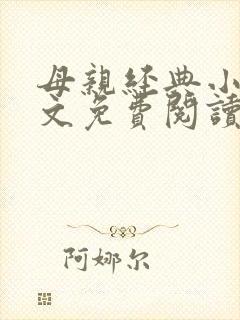 母親經典小
文免費閱讀
阿娜尔